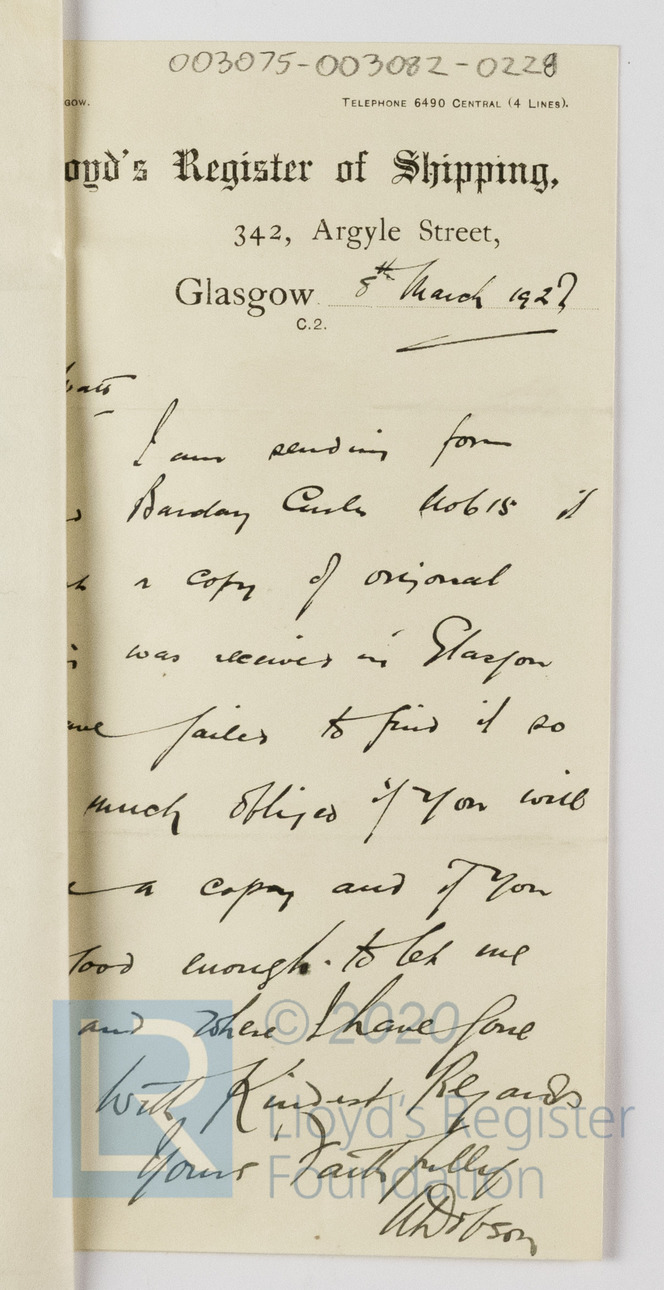 003075-003082-0228
GOW.
TELEPHONE 6490 CENTRAL (4 LINES).
oyd's Register of Shipping,
342, Argyle Street,
Glasgow 8th March 1927
C.2.
I am sending form
Barclay Curle No 615 it
copy of original
was received in Glasgow
ave failed to find it so
much obliged if you will
a copy and if you
good enough to let me
and where I have gone
With Kindest Regards
Yours Faithfully
Dobson
© 2020
Lloyd's Register
Foundation
LR